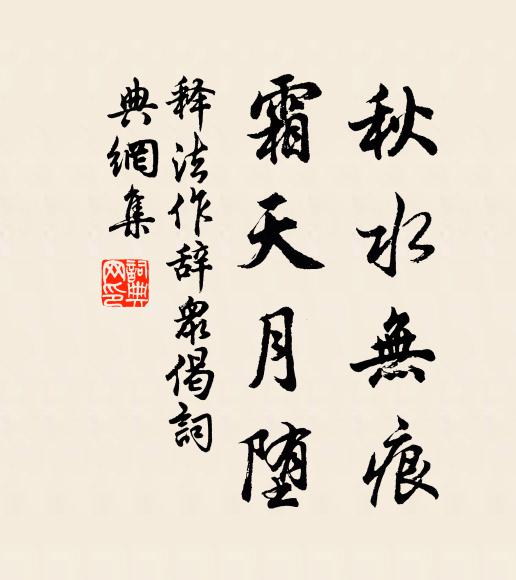 秋水無痕
霜天月堕
释法作辞眾偈詞
典網集
詞典
网印